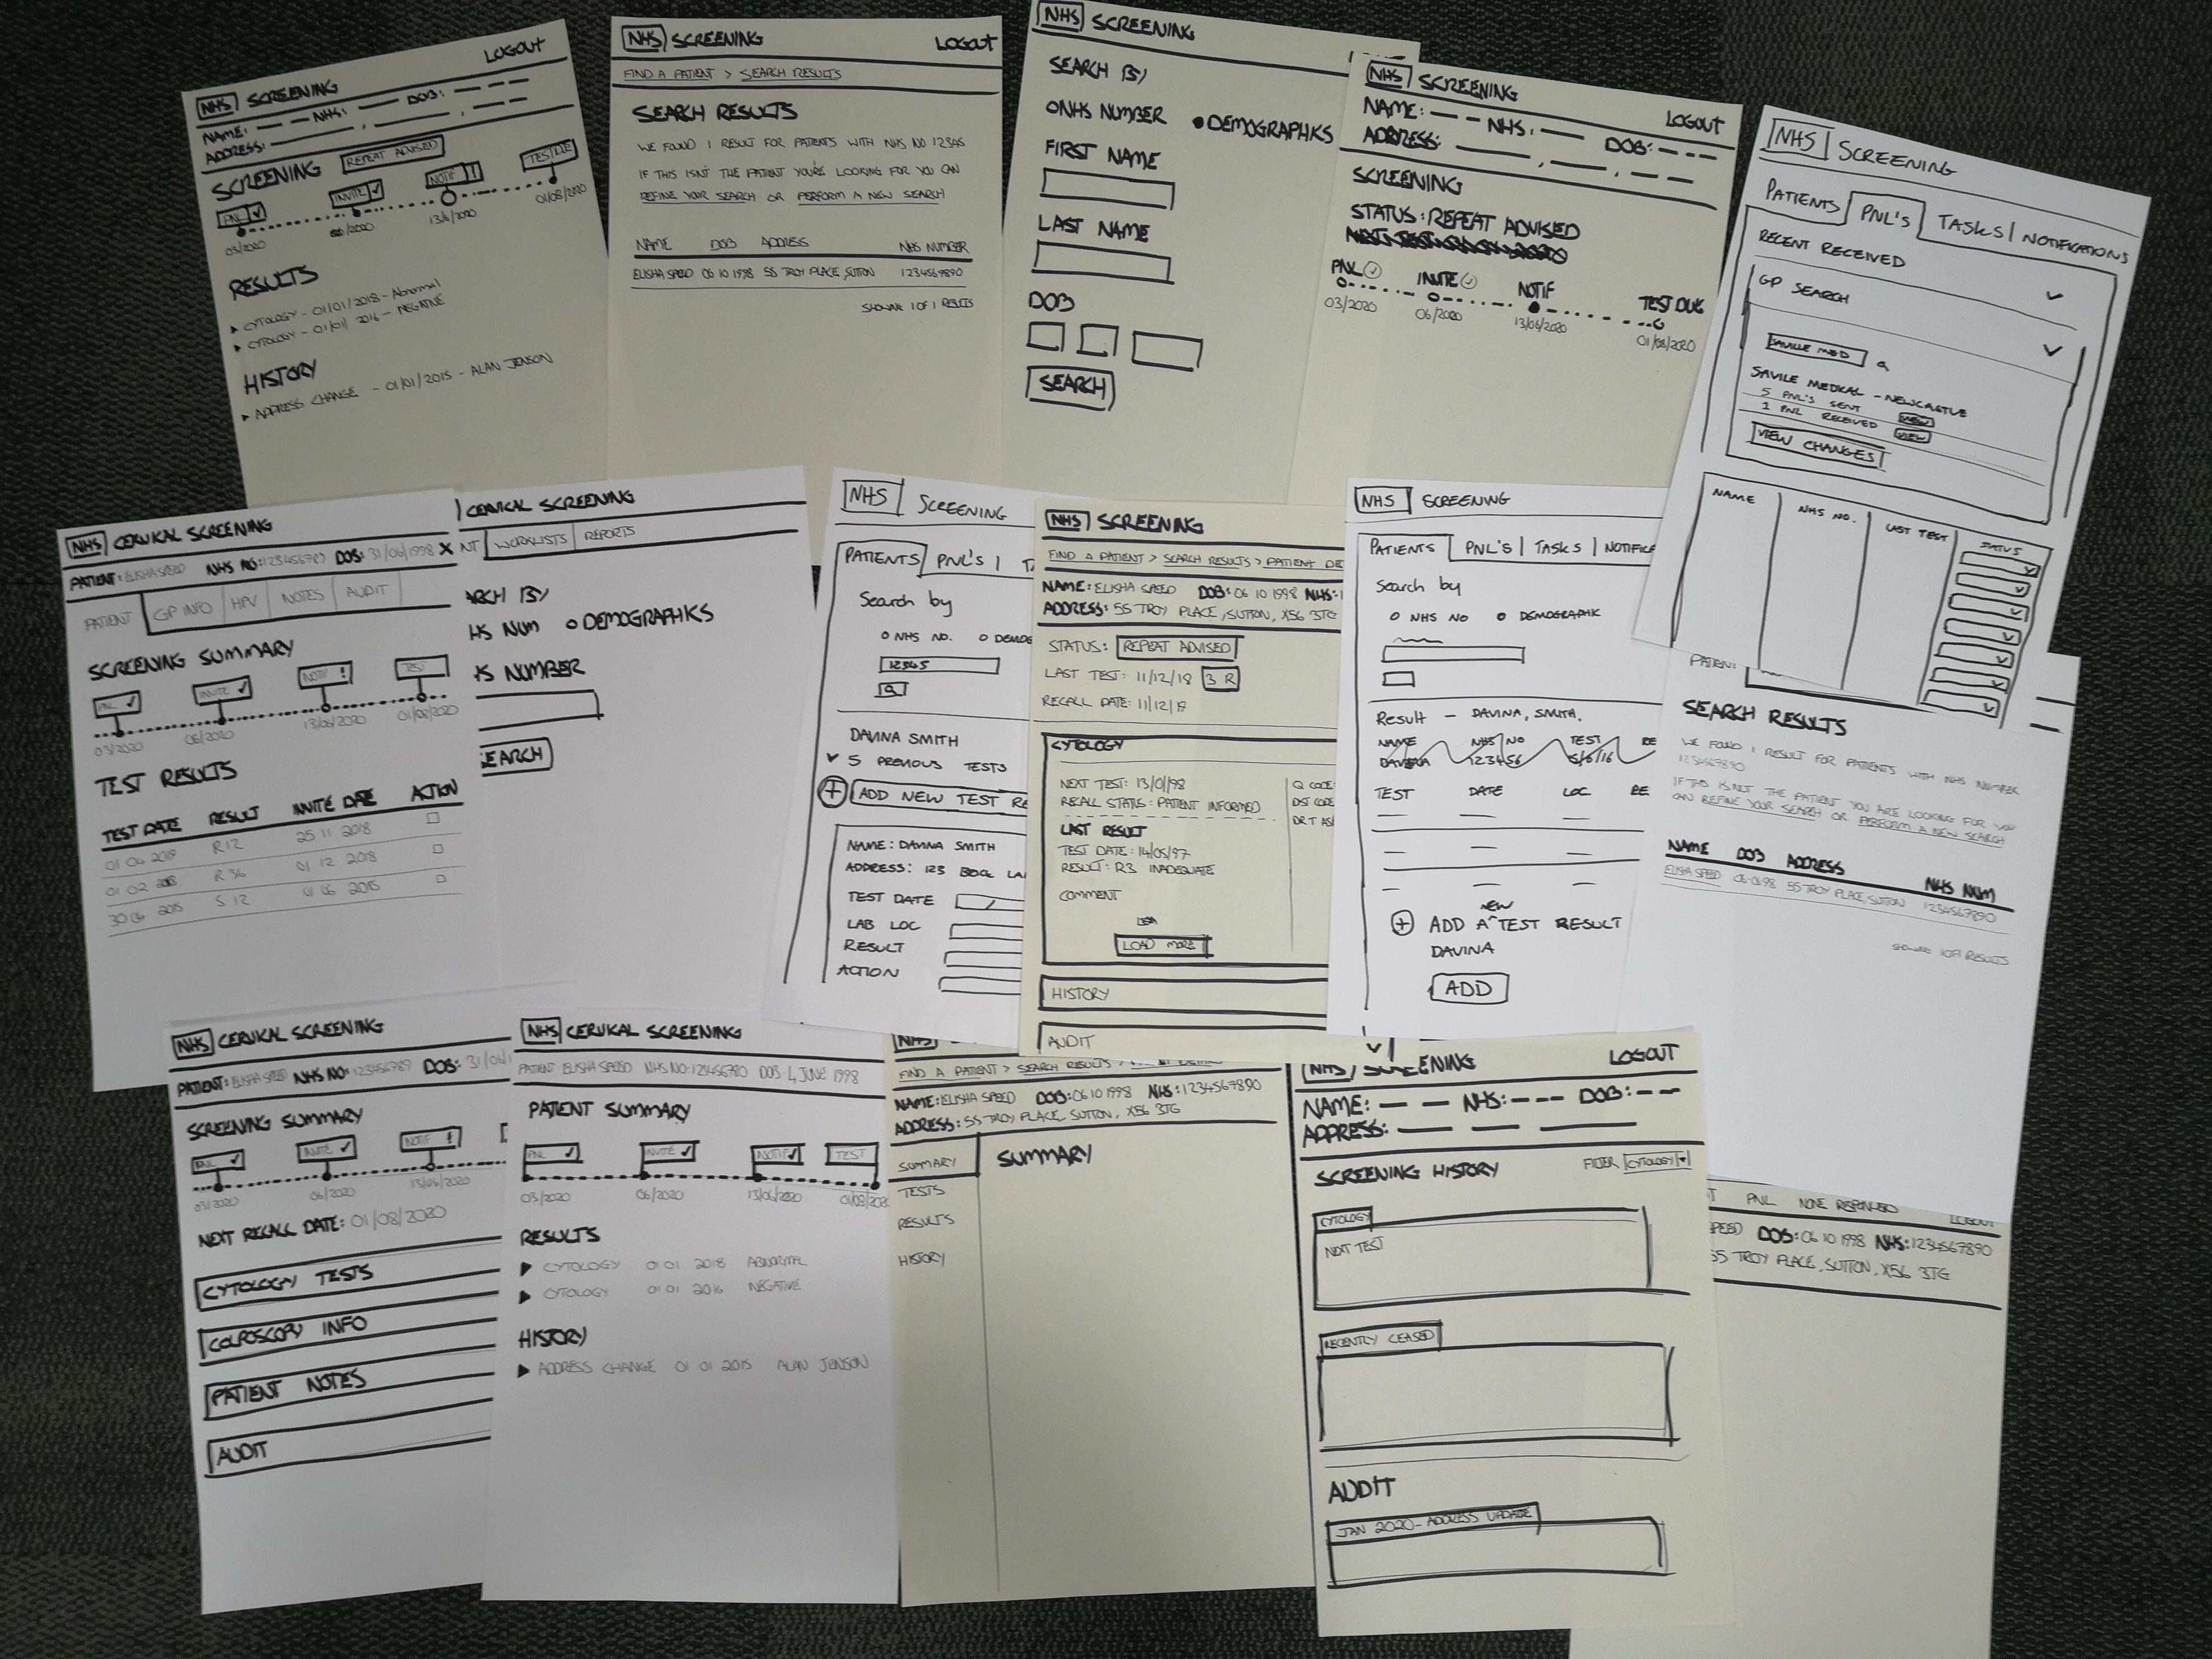 NHS SCREENING LOGOUT
NAME: NHS: DOB:
ADDRESS:
SCREENING REPEAT ADVISED
PNL INVITE NOTIF ! TEST DUE
03/2020 /2020 13/6/2020 01/08/2020
RESULTS
CYTOLOGY - 01/01/2018 - Abnormal
CYTOLOGY - 01/01/2016 - NEGATIVE
HISTORY
ADDRESS CHANGE - 01/01/2015 - ALAN JENSON
NHS SCREENING LOGOUT
FIND A PATIENT > SEARCH RESULTS
SEARCH RESULTS
WE FOUND 1 RESULT FOR PATIENTS WITH NHS NO 12345
IF THIS ISN'T THE PATIENT YOU'RE LOOKING FOR YOU CAN
REFINE YOUR SEARCH OR PERFORM A NEW SEARCH
NAME DOB ADDRESS NHS NUMBER
ELISHA SPEED 06 10 1998 55 TROY PLACE, SUTTON 1234567890
SHOWING 1 OF 1 RESULTS
NHS SCREENING
SEARCH BY
NHS NUMBER DEMOGRAPHICS
FIRST NAME
LAST NAME
DOB
SEARCH
NHS SCREENING LOGOUT
NAME: NHS: DOB:
ADDRESS:
SCREENING
STATUS: REPEAT ADVISED
PNL INVITE NOTIF TEST DUE
03/2020 06/2020 13/06/2020 01/08/2020
NHS SCREENING
PATIENTS PNL'S TASKS NOTIFICATIONS
RECENT RECEIVED
GP SEARCH
SAVILLE MED
SAVILE MEDICAL - NEWCASTLE
5 PNL'S SENT VIEW
1 PNL RECEIVED VIEW
VIEW CHANGES
NAME NHS NO. LAST TEST STATUS
NHS CERVICAL SCREENING
PATIENT: ELISHA SPEED NHS NO: 123456789 DOB: 31/06/1998 X
PATIENT GP INFO HPV NOTES AUDIT
SCREENING SUMMARY
PNL INVITE NOTIF ! TEST
03/2020 06/2020 13/06/2020 01/08/2020
TEST RESULTS
TEST DATE RESULT INVITE DATE ACTION
01 04 2019 R12 25 11 2018
01 02 R 36 01 12 2018
30 06 2015 S 12 01 06 2015
CERVICAL SCREENING
NT WORKLISTS REPORTS
ARCH BY
HS NUM DEMOGRAPHICS
HS NUMBER
EARCH
NHS SCREENING
PATIENTS PNL'S T
Search by
NHS NO. DEMOG
12345
DAVINA SMITH
5 PREVIOUS TESTS
+ ADD NEW TEST RE
NAME: DAVINA SMITH
ADDRESS: 123
TEST DATE
LAB LOC
RESULT
ACTION
NHS SCREENING
FIND A PATIENT > SEARCH RESULTS > PATIENT DE
NAME: ELISHA SPEED DOB: 06 10 1998 NHS: 1
ADDRESS: 55 TROY PLACE, SUTTON, X56 3TG
STATUS: REPEAT ADVISED
LAST TEST: 11/12/18 3 R
RECALL DATE: 11/12/19
CYTOLOGY
NEXT TEST: 13/01/98 Q CODE:
RECALL STATUS: PATIENT INFORMED DST CODE
LAST RESULT
TEST DATE: 14/05/97
RESULT: R3 INADEQUATE
COMMENT
LOAD MORE
HISTORY
AUDIT
NHS SCREENING
PATIENTS PNL'S TASKS NOTIFICA
Search by
NHS NO DEMOGRAPHIC
Result - DAVINA, SMITH.
NAME NHS NO TEST RE
DAVINA 123456 5/6/16
TEST DATE LOC RE
NEW
+ ADD A ^ TEST RESULT
DAVINA
ADD
PATIENT
SEARCH RESULTS
WE FOUND 1 RESULT FOR PATIENTS WITH NHS NUMBER
1234567890
IF THIS IS NOT THE PATIENT YOU ARE LOOKING FOR YOU
CAN REFINE YOUR SEARCH OR PERFORM A NEW SEARCH
NAME DOB ADDRESS NHS NUM
ELISHA SPEED 06 0698 55 TROY PLACE, SUTTON 1234567890
SHOWING 1 OF 1 RESULTS
NHS CERVICAL SCREENING
PATIENT: ELISHA SPEED NHS NO: 123456789 DOB: 31/06/1
SCREENING SUMMARY
PNL INVITE NOTIF !
03/2020 06/2020 13/06/2020
NEXT RECALL DATE: 01/08/2020
CYTOLOGY TESTS
COLPOSCOPY INFO
PATIENT NOTES
AUDIT
NHS CERVICAL SCREENING
PATIENT ELISHA SPEED NHS NO: 123456780 DOB 4 JUNE 1998
PATIENT SUMMARY
PNL INVITE NOTIF TEST
03/2020 06/2020 13/06/2020 01/08/202
RESULTS
CYTOLOGY 01 01 2018 ABNORMAL
CYTOLOGY 01 01 2016 NEGATIVE
HISTORY
ADDRESS CHANGE 01 01 2015 ALAN JENSON
FIND A PATIENT > SEARCH RESULTS >
NAME: ELISHA SPEED DOB: 06 10 1998 NHS: 1234567890
ADDRESS: 55 TROY PLACE, SUTTON, X56 3TG
SUMMARY SUMMARY
TESTS
RESULTS
HISTORY
NHS SCREENING LOGOUT
NAME: NHS: DOB:
ADDRESS:
SCREENING HISTORY FILTER CYTOLOGY
CYTOLOGY
NEXT TEST
RECENTLY CEASED
AUDIT
JAN 2020 - ADDRESS UPDATE
PNL NONE RESPONDED
LOGOUT
SPEED DOB: 06 10 1998 NHS: 1234567890
55 TROY PLACE, SUTTON, X56 3TG